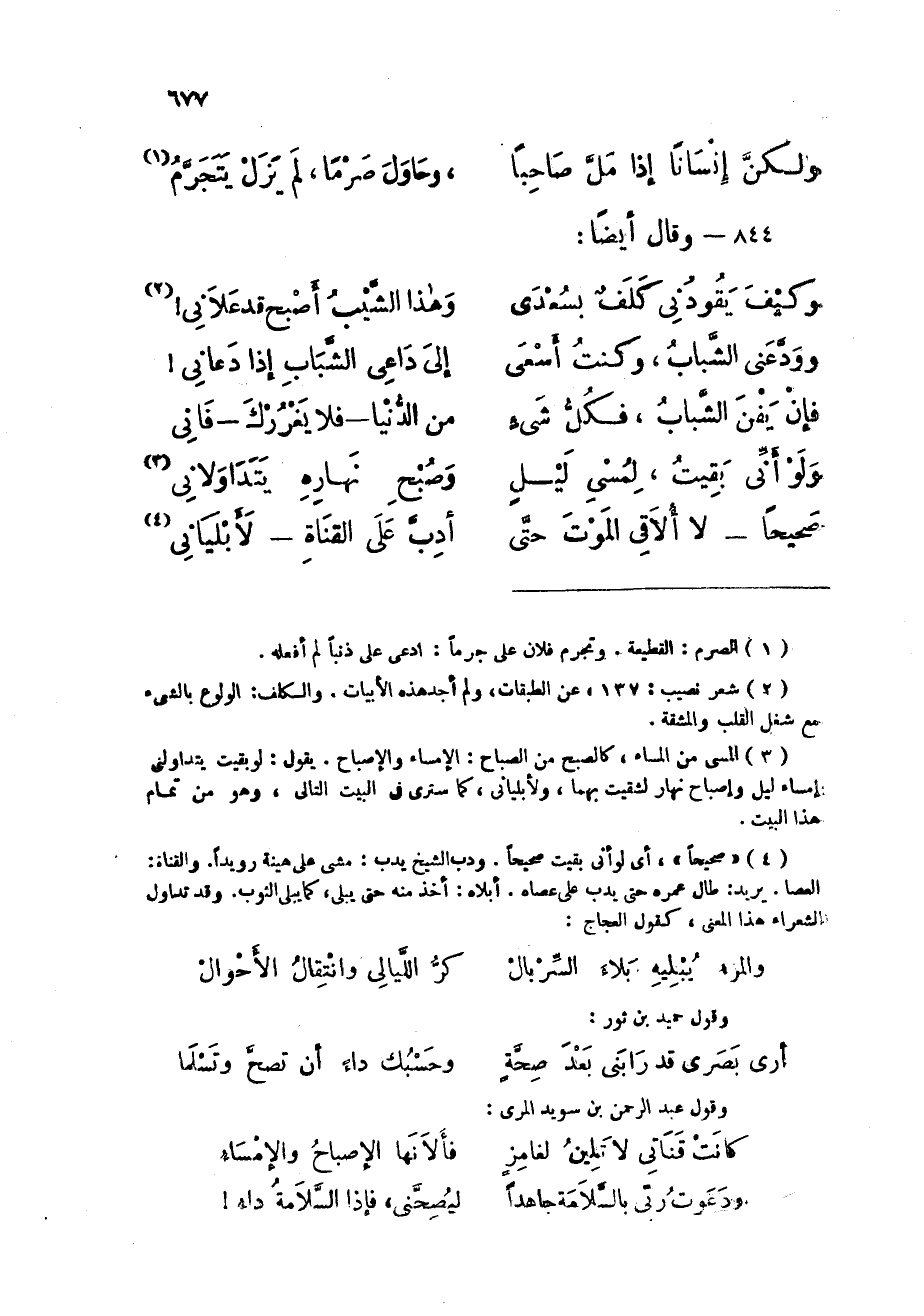 ٦٧٧
ولٰكنَّ إِنْسَانًا إذا مَلَّ صَاحِبًا ، وحَاوَلَ صَرْمًا، لَم يَزَلْ يَتَجَرَّمُ (١)
٨٤٤ — وقال أيضًا:
وكَيْفَ يَقُودُنِي كَلَفٌ بسُعْدَى وَهٰذا الشَّيْبُ أَصْبح قد عَلاَنِي! (٢)
ووَدَّعَنى الشَّبابُ، وكنتُ أَسْعَى إلىَ دَاعِى الشَّبَابِ إذا دَعانِي !
فإنْ يَفْنَ الشَّبابُ ، فكُلُّ شَىءٍ من الدُّنْيا — فلا يَغْرُرْكَ — فَانِى
وَلَوْ أَنِّى بَقِيتُ ، لِمُسْيِ لَيْلٍ وَصُبْحِ نَهارِهِ يَتَدَاوَلانِي (٣)
صَحِيحاً — لا أُلاَقِى المَوْتَ حتَّى أدِبَّ عَلَى القنَاةِ — لَأَبْلَيَانِي (٤)
( ١ ) الصرم : القطيعة . وتجرم فلان على جرماً : ادعى على ذنباً لم أفعله .
( ٢ ) شعر نصيب : ١٣٧ ، عن الطبقات، ولم أجد هذه الأبيات . والكلف: الولوع بالشىء
مع شغل القلب والمشقة .
( ٣ ) المسى من المساء ، كالصبح من الصباح : الإمساء والإصباح . يقول : لو بقيت يتداولنى
إمساء ليل وإصباح نهار لشقيت بهما ، ولأبليانى ، كما سترى فى البيت التالى ، وهو من تمام
هذا البيت .
( ٤ ) « صحيحاً » ، أى لو أنى بقيت صحيحاً . ودب الشيخ يدب : مشى على هينة رويداً. والقناة:
العصا . يريد: طال عمره حتى يدب على عصاه . أبلاه : أخذ منه حتى يبلى، كما يبلى الثوب. وقد تداول
الشعراء هذا المعنى ، كقول العجاج :
والمرء يُبْلِيهِ بَلاءَ السِّرْبالْ كرُّ اللَّيالِى وانْتِقالُ الأَحْوالْ
وقول حميد بن ثور :
أرى بَصَرى قد رَابَنى بَعْدَ صِحَّةٍ وحَسْبُك داءً أن تصحَّ وتَسْلَما
وقول عبد الرحمن بن سويد المرى :
كانَتْ قَنَاتِى لا تَلِينُ لغامِزٍ فأَلاَنَها الإصباحُ والإمْسَاء
ودَعَوتُ ربِّى بالسَّلاَمَة جاهداً ليُصِحَّنى، فإذا السَّلاَمةُ داء !